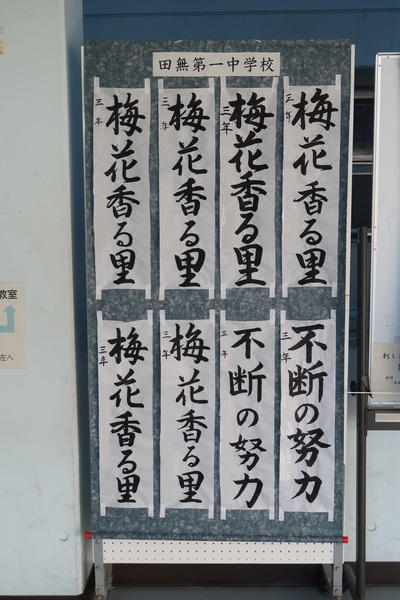 田無第一中学校
梅花香る里
三年
梅花香る里
三年
梅花香る里
三年
梅花香る里
三年
不断の努力
三年
不断の努力
三年
梅花香る里
三年
梅花香る里
三年
教室
左へ